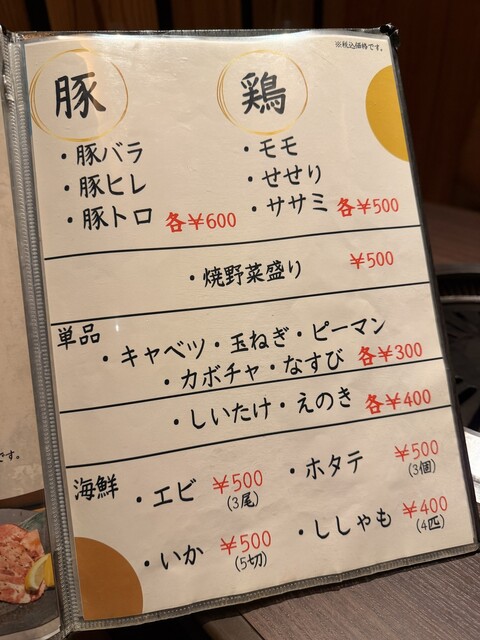 ※税込価格です。
豚
・豚バラ
・豚ヒレ
・豚トロ 各¥600
鶏
・モモ
・せせり
・ササミ 各¥500
・焼野菜盛り ¥500
単品
・キャベツ・玉ねぎ・ピーマン
・カボチャ・なすび 各¥300
・しいたけ・えのき 各¥400
海鮮
・エビ ¥500
(3尾)
・ホタテ ¥500
(3個)
・いか ¥500
(5切)
・ししゃも ¥400
(4匹)
です。